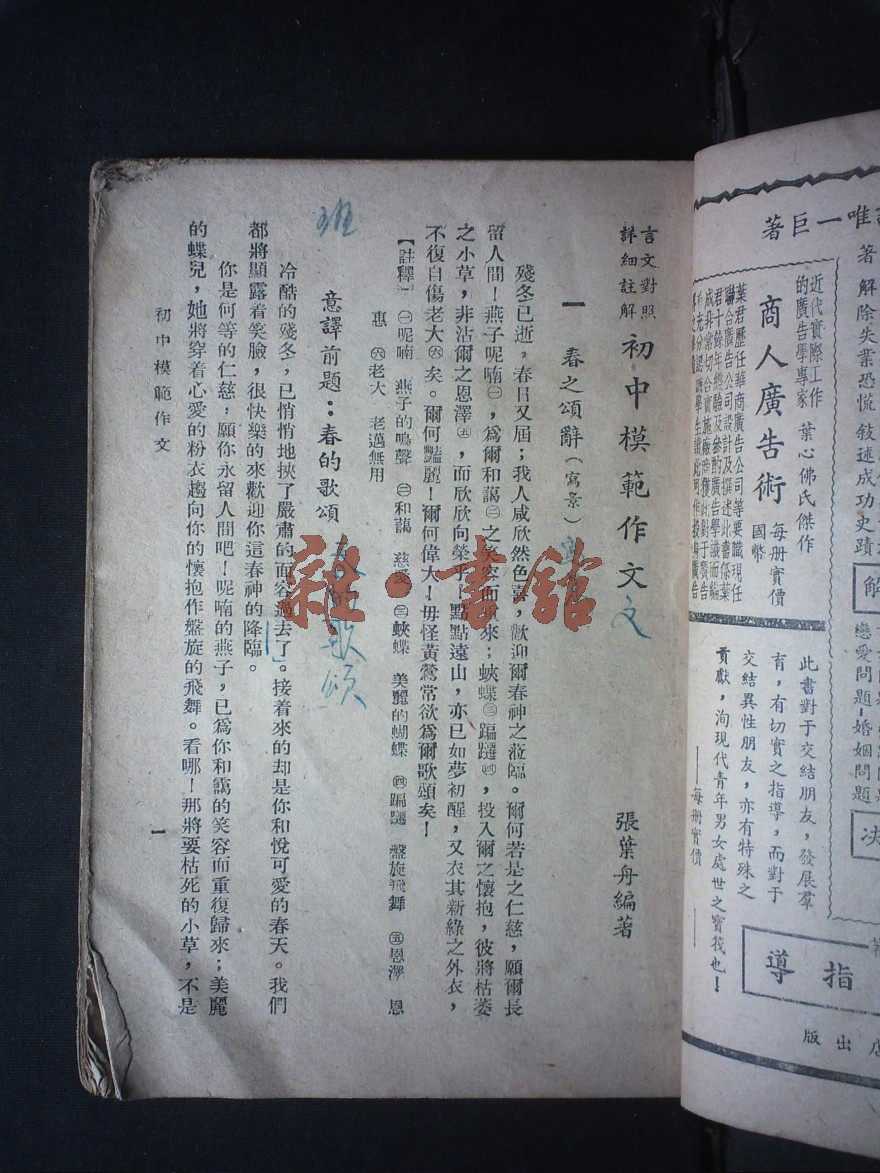 唯一巨著
著
解除失業恐慌 敍述成功史蹟
近代實際工作
的廣告學專家
葉心佛氏傑作
商人廣告術
每册實價
國幣
葉君歷任華商廣告公司等要職現任
聯合廣告公司設計及撰述此書係葉
君十餘年經驗及參酌廣告學識而編
解
戀愛問題 婚姻問題
决
此書對于交結朋友，發展羣
育，有切實之指導，而對于
交結異性朋友，亦有特殊之
貢獻，洵現代青年男女處世之寶筏也！
——每册實價——
指導
店出版
言文對照
詳細註解
初中模範作文
文
張葉舟編著
一 春之頌辭（寫景）
殘冬已逝，春日又屆；我人咸欣然色喜，歡迎爾春神之涖臨。爾何若是之仁慈，願爾長
留人間！燕子呢喃㊀，爲爾和藹㊁之笑容而重來；蛺蝶㊂蹁躚㊃，投入爾之懷抱，彼將枯萎
之小草，非沾爾之恩澤㊄，而欣欣向榮乎！點點遠山，亦已如夢初醒，又衣其新綠之外衣，
不復自傷老大㊅矣。爾何豔麗！爾何偉大！毋怪黃鶯常欲爲爾歌頌矣！
【註釋】㊀呢喃 燕子的鳴聲 ㊁和藹 慈愛 ㊂蛺蝶 美麗的蝴蝶 ㊃蹁躚 盤旋飛舞 ㊄恩澤 恩
惠 ㊅老大 老邁無用
意譯前題：春的歌頌
春的歌頌
班
冷酷的殘冬，已悄悄地挾了嚴肅的面容過去了。接着來的却是你和悅可愛的春天。我們
都將顯露着笑臉，很快樂的來歡迎你這春神的降臨。
你是何等的仁慈，願你永留人間吧！呢喃的燕子，已爲你和藹的笑容而重復歸來；美麗
的蝶兒，她將穿着心愛的粉衣趨向你的懷抱作盤旋的飛舞。看哪！那將要枯死的小草，不是
初中模範作文
一
雜·書館